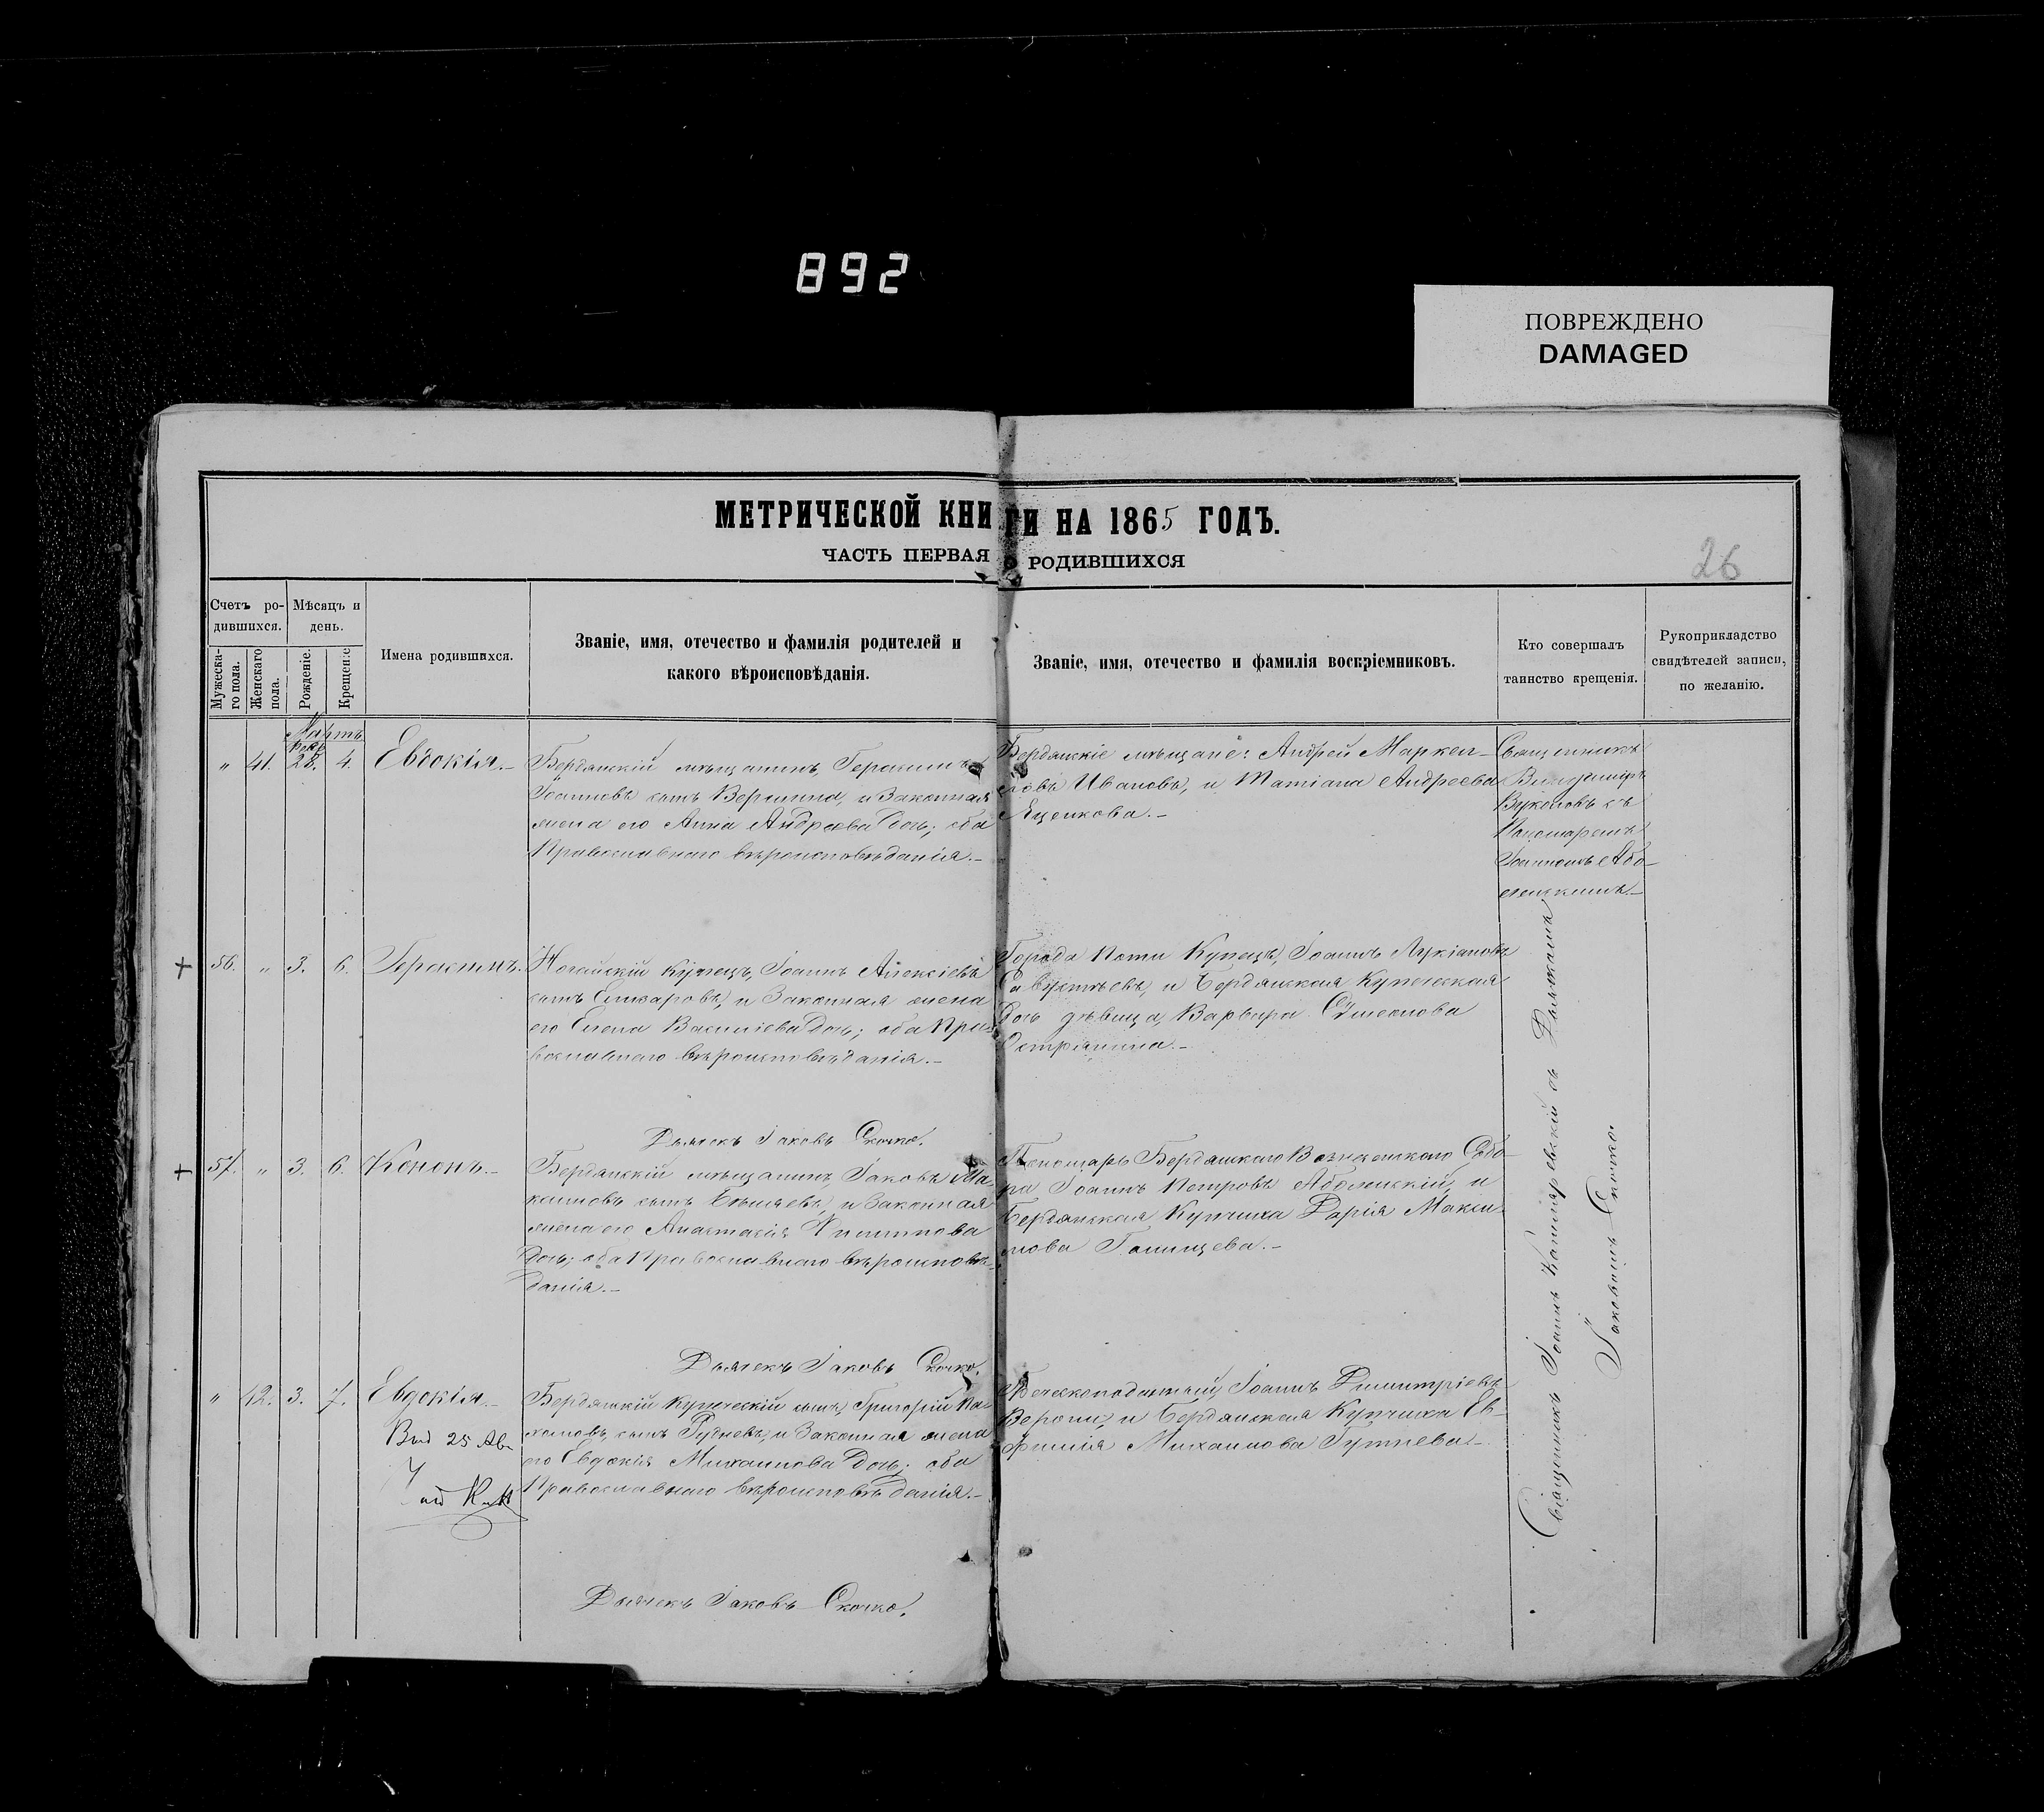 892
ПОВРЕЖДЕНО
DAMAGED
МЕТРИЧЕСКОЙ КНИГИ НА 1865 ГОДЪ.
ЧАСТЬ ПЕРВАЯ О РОДИВШИХСЯ
26
Счетъ ро-
дившихся.
Мѣсяцъ и
день.
Мужеска-
го пола.
Женскаго
пола.
Рожденіе.
Крещеніе
Имена родившихся.
Званіе, имя, отечество и фамилія родителей и
какого вѣроисповѣданія.
Званіе, имя, отечество и фамилія воспріемниковъ.
Кто совершалъ
таинство крещенія.
Рукоприкладство
свидѣтелей записи,
по желанію.
Мартъ
" 41. 28. 4. Евдокія.-
Бердянскій мѣщанинъ, Герасимъ
Іоанновъ сынъ Вершина, и Законная
жена его Анна Андреева дочь; оба
Православнаго вѣроисповѣданія.-
Бердянскіе мѣщане: Андрей Маркел-
ловъ Ивановъ, и Татіана Андреева
Яценкова.-
Священникъ
Владиміръ
Вуколовъ съ
Пономаремъ
Іоанномъ Або-
ленскимъ.-
+ 56. " 3. 6. Герасимъ.
Ногайскій Купецъ, Іоаннъ Алексіевъ
сынъ Елизаровъ, и Законная жена
его Елена Василіева дочь; оба Пра-
вославнаго вѣроисповѣданія.-
Города Поти Купецъ, Іоаннъ Лукіановъ
и Бердянская Купеческая
дочь дѣвица, Варвара Сумеонова
Дьячекъ Іаковъ Скочко.
+ 57. " 3. 6. Кононъ.-
Бердянскій мѣщанинъ, Іаковъ Ма-
симовъ сынъ и Законная
жена его Анастасія Филиппова
дочь; оба Православнаго вѣроисповѣ-
данія.-
Пономарь Бердянскаго Вознесенскаго Собо-
ра Іоаннъ Петровъ Аболенскій, и
Бердянская Купчиха Дарія Макси-
мова
Дьячекъ Іаковъ Скочко.
" 42. 3. 7. Евдокія.-
Выд 25 Ав
Бердянскій Купеческій сынъ, Григорій Па-
хомовъ сынъ Рудневъ, и Законная жена
его Евдокія Михаилова дочь; оба
Православнаго вѣроисповѣданія.-
Іоаннъ Димитріевъ
и Бердянская Купчиха Ев-
фимія Михаилова
Дьячекъ Іаковъ Скочко.
Священникъ Іоаннъ съ Дьячкомъ
Іаковомъ Скочко.